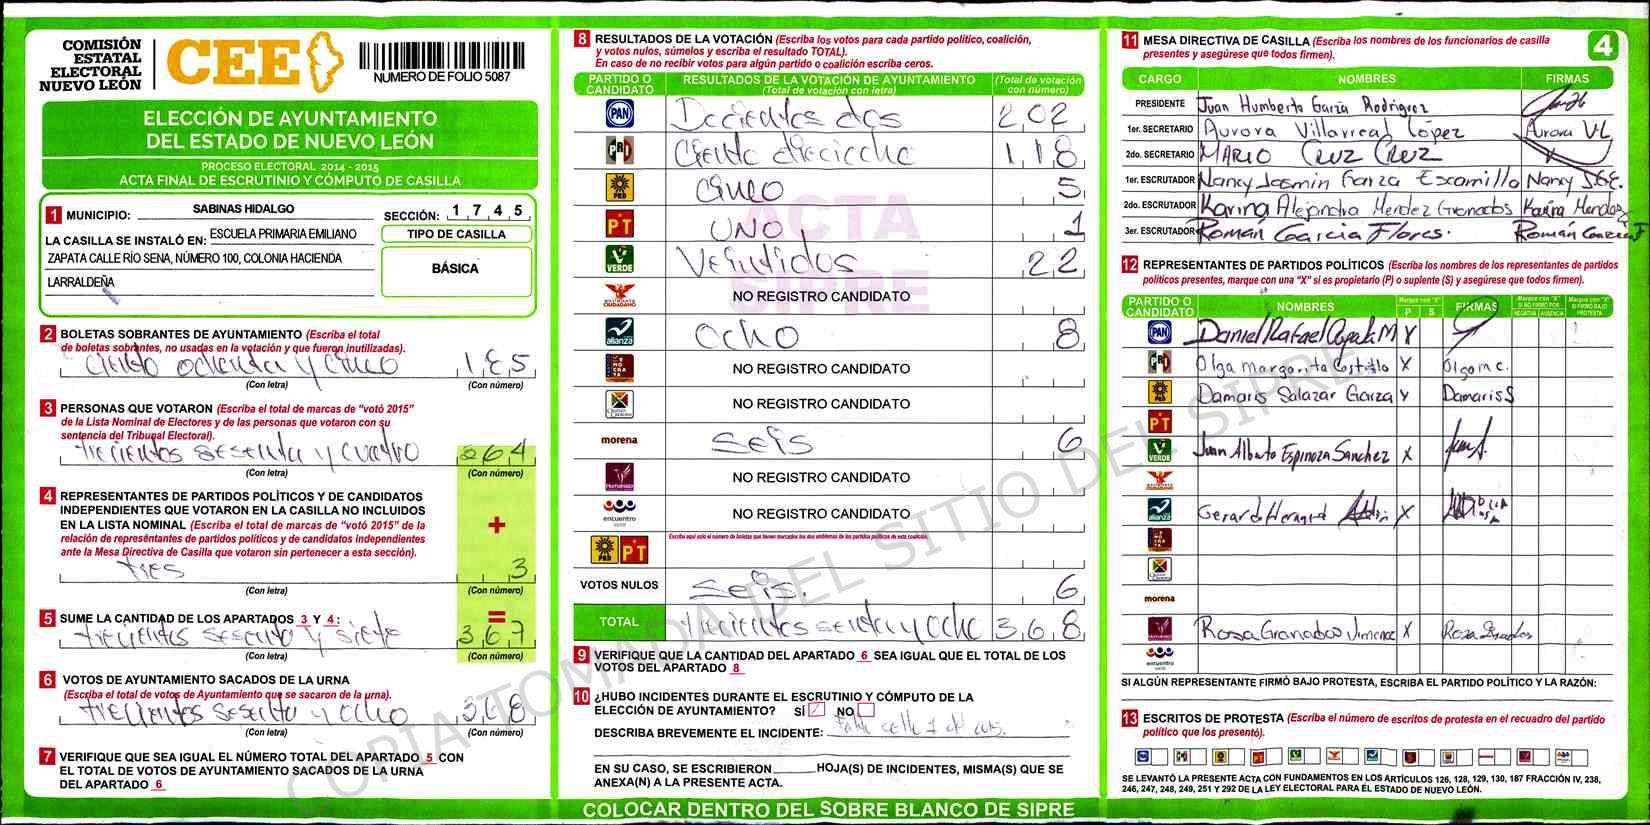 COMISIÓN
ESTATAL
ELECTORAL
NUEVO LEÓN
CEE
NUMERO DE FOLIO 5087
ELECCIÓN DE AYUNTAMIENTO
DEL ESTADO DE NUEVO LEÓN
PROCESO ELECTORAL 2014 - 2015
ACTA FINAL DE ESCRUTINIO Y CÓMPUTO DE CASILLA
1 MUNICIPIO: SABINAS HIDALGO SECCIÓN: 1 7 4 5
LA CASILLA SE INSTALÓ EN: ESCUELA PRIMARIA EMILIANO
ZAPATA CALLE RÍO SENA, NÚMERO 100, COLONIA HACIENDA
LARRALDEÑA
TIPO DE CASILLA
BÁSICA
2 BOLETAS SOBRANTES DE AYUNTAMIENTO (Escriba el total
de boletas sobrantes, no usadas en la votación y que fueron inutilizadas).
ciento ochenta y cinco 1 8 5
(Con letra) (Con número)
3 PERSONAS QUE VOTARON (Escriba el total de marcas de "votó 2015"
de la Lista Nominal de Electores y de las personas que votaron con su
sentencia del Tribunal Electoral).
trecientos sesenta y cuatro 364
(Con letra) (Con número)
4 REPRESENTANTES DE PARTIDOS POLÍTICOS Y DE CANDIDATOS
INDEPENDIENTES QUE VOTARON EN LA CASILLA NO INCLUIDOS
EN LA LISTA NOMINAL (Escriba el total de marcas de "votó 2015" de la
relación de representantes de partidos políticos y de candidatos independientes
ante la Mesa Directiva de Casilla que votaron sin pertenecer a esta sección).
+
tres 3
(Con letra) (Con número)
=
5 SUME LA CANTIDAD DE LOS APARTADOS 3 Y 4:
trecientos sesenta y siete 3 6 7
(Con letra) (Con número)
6 VOTOS DE AYUNTAMIENTO SACADOS DE LA URNA
(Escriba el total de votos de Ayuntamiento que se sacaron de la urna).
trecientos sesenta y ocho 3 6 8
(Con letra) (Con número)
7 VERIFIQUE QUE SEA IGUAL EL NÚMERO TOTAL DEL APARTADO 5 CON
EL TOTAL DE VOTOS DE AYUNTAMIENTO SACADOS DE LA URNA
DEL APARTADO 6
8 RESULTADOS DE LA VOTACIÓN (Escriba los votos para cada partido político, coalición,
y votos nulos, súmelos y escriba el resultado TOTAL).
En caso de no recibir votos para algún partido o coalición escriba ceros.
PARTIDO O CANDIDATO RESULTADOS DE LA VOTACIÓN DE AYUNTAMIENTO (Total de votación con letra) (Total de votación con número)
PAN Docientos dos 2 0 2
PRI Ciento dieciocho 1 1 8
PRD Cinco 5
PT UNO 1
VERDE Veintidos 2 2
MOVIMIENTO CIUDADANO NO REGISTRO CANDIDATO
alianza Ocho 8
DEMÓCRATA NO REGISTRO CANDIDATO
NO REGISTRO CANDIDATO
morena seis 6
Humanista NO REGISTRO CANDIDATO
encuentro social NO REGISTRO CANDIDATO
PRD PT Escriba aquí solo el número de boletas que tienen marcados los dos emblemas de los partidos políticos de esta coalición.
VOTOS NULOS seis. 6
TOTAL trecientos sesenta y ocho 3 6 8
ACTA
SIPRE
9 VERIFIQUE QUE LA CANTIDAD DEL APARTADO 6 SEA IGUAL QUE EL TOTAL DE LOS
VOTOS DEL APARTADO 8
10 ¿HUBO INCIDENTES DURANTE EL ESCRUTINIO Y CÓMPUTO DE LA
ELECCIÓN DE AYUNTAMIENTO? SÍ NO
DESCRIBA BREVEMENTE EL INCIDENTE:
EN SU CASO, SE ESCRIBIERON HOJA(S) DE INCIDENTES, MISMA(S) QUE SE
ANEXA(N) A LA PRESENTE ACTA.
COLOCAR DENTRO DEL SOBRE BLANCO DE SIPRE
11 MESA DIRECTIVA DE CASILLA (Escriba los nombres de los funcionarios de casilla
presentes y asegúrese que todos firmen).
4
CARGO NOMBRES FIRMAS
PRESIDENTE Juan Humberto Garza Rodriguez
1er. SECRETARIO Aurora Villarreal López Aurora VL
2do. SECRETARIO MARIO CRUZ CRUZ
1er. ESCRUTADOR Nancy Jasmin Garza Escamilla Nancy J.G.E.
2do. ESCRUTADOR Karina Alejandra Mendez Granados Karina Mendez
3er. ESCRUTADOR Román Garcia Flores. Román Garcia F
12 REPRESENTANTES DE PARTIDOS POLÍTICOS (Escriba los nombres de los representantes de partidos
políticos presentes, marque con una "X" si es propietario (P) o suplente (S) y asegúrese que todos firmen).
PARTIDO O CANDIDATO NOMBRES Marque con "X" P S FIRMAS Marque con "X" SI NO FIRMÓ POR NEGATIVA AUSENCIA Marque con "X" SI FIRMÓ BAJO PROTESTA
PAN Daniel Rafael M X
PRI Olga Margarita Castillo X Olga m c.
PRD Damaris Salazar Garza X Damaris S
PT
VERDE Juan Alberto Espinoza Sanchez X
alianza Gerardo X
morena
Humanista Rosa Granados Jimenez X Rosa Granados
encuentro social
SI ALGÚN REPRESENTANTE FIRMÓ BAJO PROTESTA, ESCRIBA EL PARTIDO POLÍTICO Y LA RAZÓN:
13 ESCRITOS DE PROTESTA (Escriba el número de escritos de protesta en el recuadro del partido
político que los presentó).
SE LEVANTÓ LA PRESENTE ACTA CON FUNDAMENTOS EN LOS ARTÍCULOS 126, 128, 129, 130, 187 FRACCIÓN IV, 238,
246, 247, 248, 249, 251 Y 292 DE LA LEY ELECTORAL PARA EL ESTADO DE NUEVO LEÓN.
COPIA TOMADA DEL SITIO DEL SIPRE